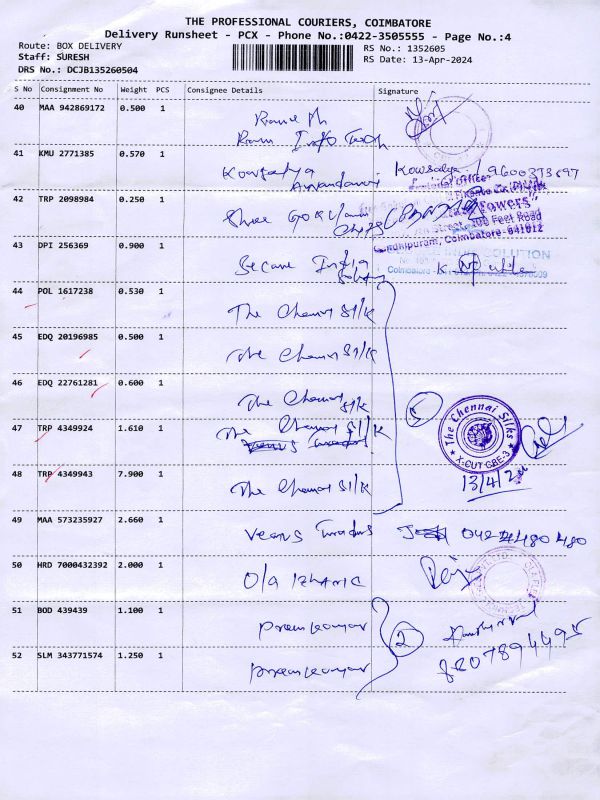 THE PROFESSIONAL COURIERS, COIMBATORE
Delivery Runsheet - PCX - Phone No.:0422-3505555 - Page No.:4
Route: BOX DELIVERY RS No.: 1352605
Staff: SURESH RS Date: 13-Apr-2024
DRS No.: DCJB135260504
S No Consignment No Weight PCS Consignee Details Signature
40 MAA 942869172 0.500 1
Ram Info Tech
41 KMU 2771385 0.570 1
Kowsalya 9600373697
42 TRP 2098984 0.250 1 Shree
Towers"
100 Feet Road
Gandhipuram, Coimbatore-641012
43 DPI 256369 0.900 1
SOLUTION
Coimbatore
44 POL 1617238 0.530 1 The Chennai Silk
45 EDQ 20196985 0.500 1 The Chennai Silk
46 EDQ 22761281 0.600 1 The Chennai Silk
5
47 TRP 4349924 1.610 1 The Chennai Silk
The Chennai Silks
X-CUT CBE-3
13/4/2
48 TRP 4349943 7.900 1 The Chennai Silk
49 MAA 573235927 2.660 1 Venus Traders
50 HRD 7000432392 2.000 1 Ola
51 BOD 439439 1.100 1 Premkumar
2
52 SLM 343771574 1.250 1 Premkumar
8207894495